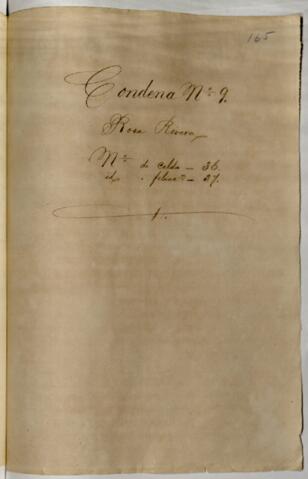 165
Condena Nº 9.
Rosa Rivera
Nº de celda – 36.
id. " – 27.